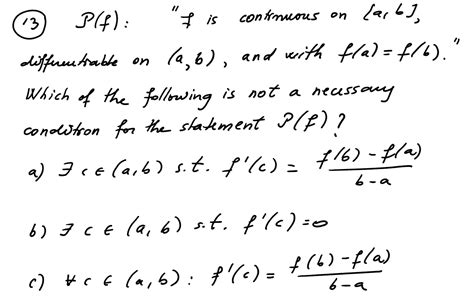 (13) P(f): "f is continuous on [a, b],
differentiable on (a, b), and with f(a) = f(b)."
Which of the following is not a necessary
condition for the statement P(f)?
a) ∃ c ∈ (a, b) s.t. f'(c) = (f(b) - f(a))/(b - a)
b) ∃ c ∈ (a, b) s.t. f'(c) = 0
c) ∀ c ∈ (a, b): f'(c) = (f(b) - f(a))/(b - a)